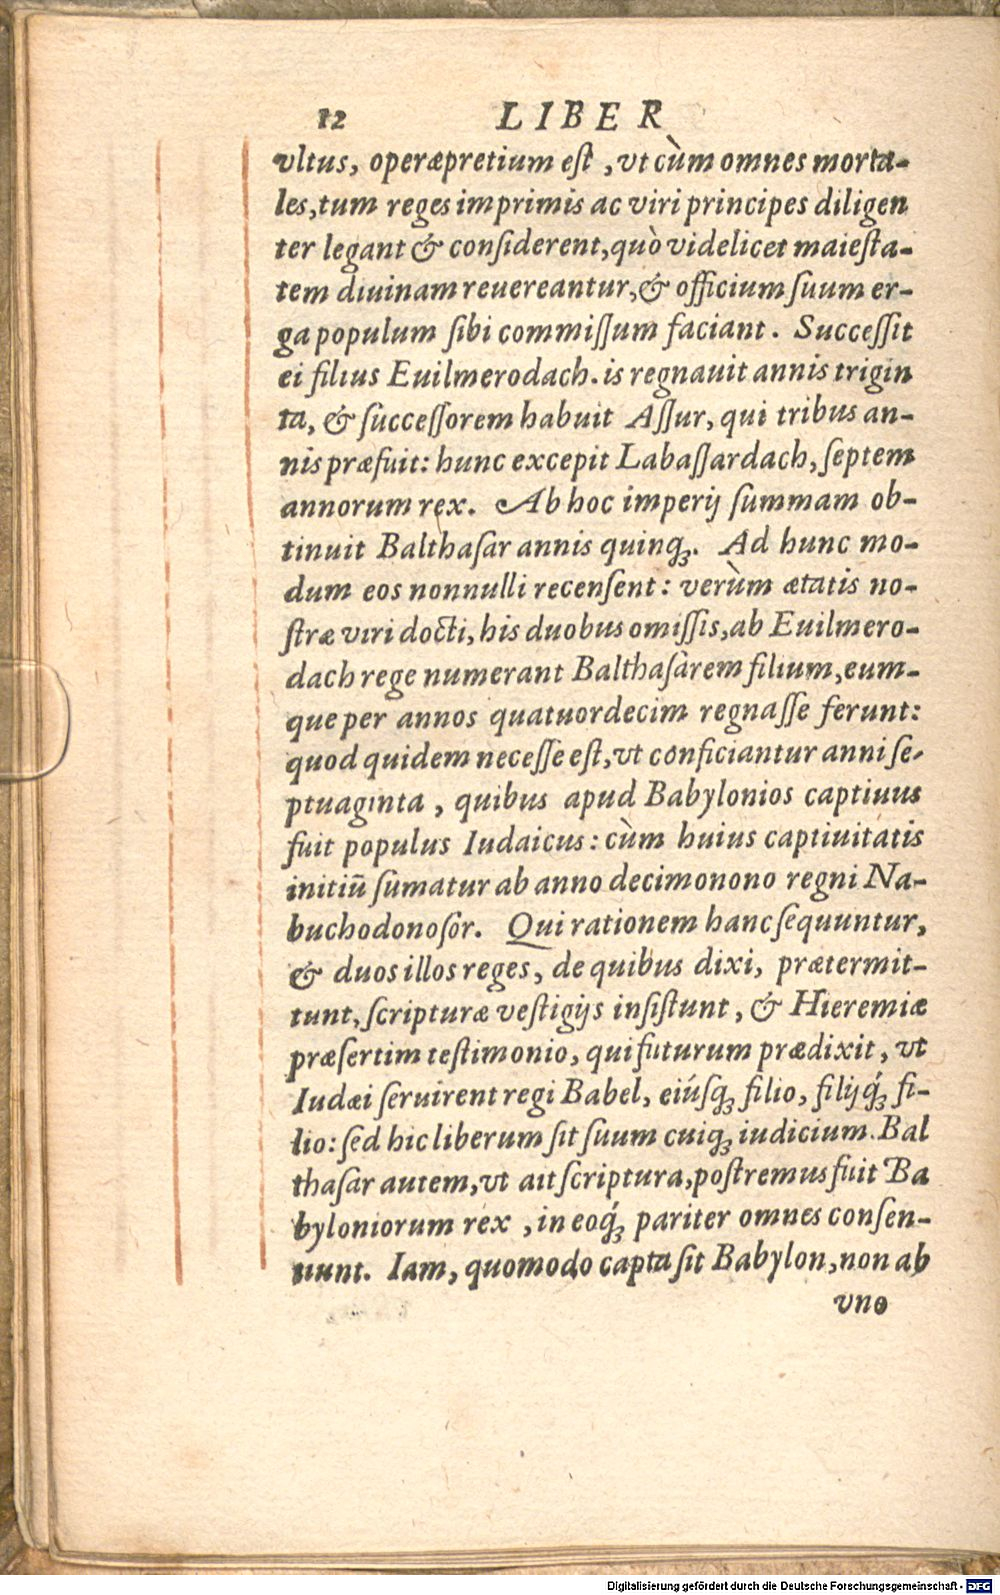 12 LIBER
vltus, operæpretium eſt, vt cùm omnes morta-
les, tum reges imprimis ac viri principes diligen
ter legant & conſiderent, quò videlicet maieſta-
tem diuinam reuereantur, & officium ſuum er-
ga populum ſibi commiſſum faciant. Succeſſit
ei filius Euilmerodach. is regnauit annis trigin
ta, & ſucceſſorem habuit Aſſur, qui tribus an-
nis præfuit: hunc excepit Labaſſardach, ſeptem
annorum rex. Ab hoc imperij ſummam ob-
tinuit Balthaſar annis quinqꝫ. Ad hunc mo-
dum eos nonnulli recenſent: verùm ætatis no-
ſtræ viri docti, his duobus omiſſis, ab Euilmero-
dach rege numerant Balthaſarem filium, eum-
que per annos quatuordecim regnaſſe ferunt:
quod quidem neceſſe eſt, vt conficiantur anni ſe-
ptuaginta, quibus apud Babylonios captiuus
fuit populus Iudaicus: cùm huius captiuitatis
initiū ſumatur ab anno decimonono regni Na-
buchodonoſor. Qui rationem hanc ſequuntur,
& duos illos reges, de quibus dixi, prætermit-
tunt, ſcripturæ veſtigijs inſiſtunt, & Hieremiæ
præſertim teſtimonio, qui futurum prædixit, vt
Iudæi ſeruirent regi Babel, eiúſqꝫ filio, filijq́ꝫ fi-
lio: ſed hic liberum ſit ſuum cuiqꝫ iudicium. Bal
thaſar autem, vt ait ſcriptura, poſtremus fuit Ba
byloniorum rex, in eoq́ꝫ pariter omnes conſen-
tiunt. Iam, quomodo capta ſit Babylon, non ab
vno
Digitalisierung gefördert durch die Deutsche Forschungsgemeinschaft - DFG